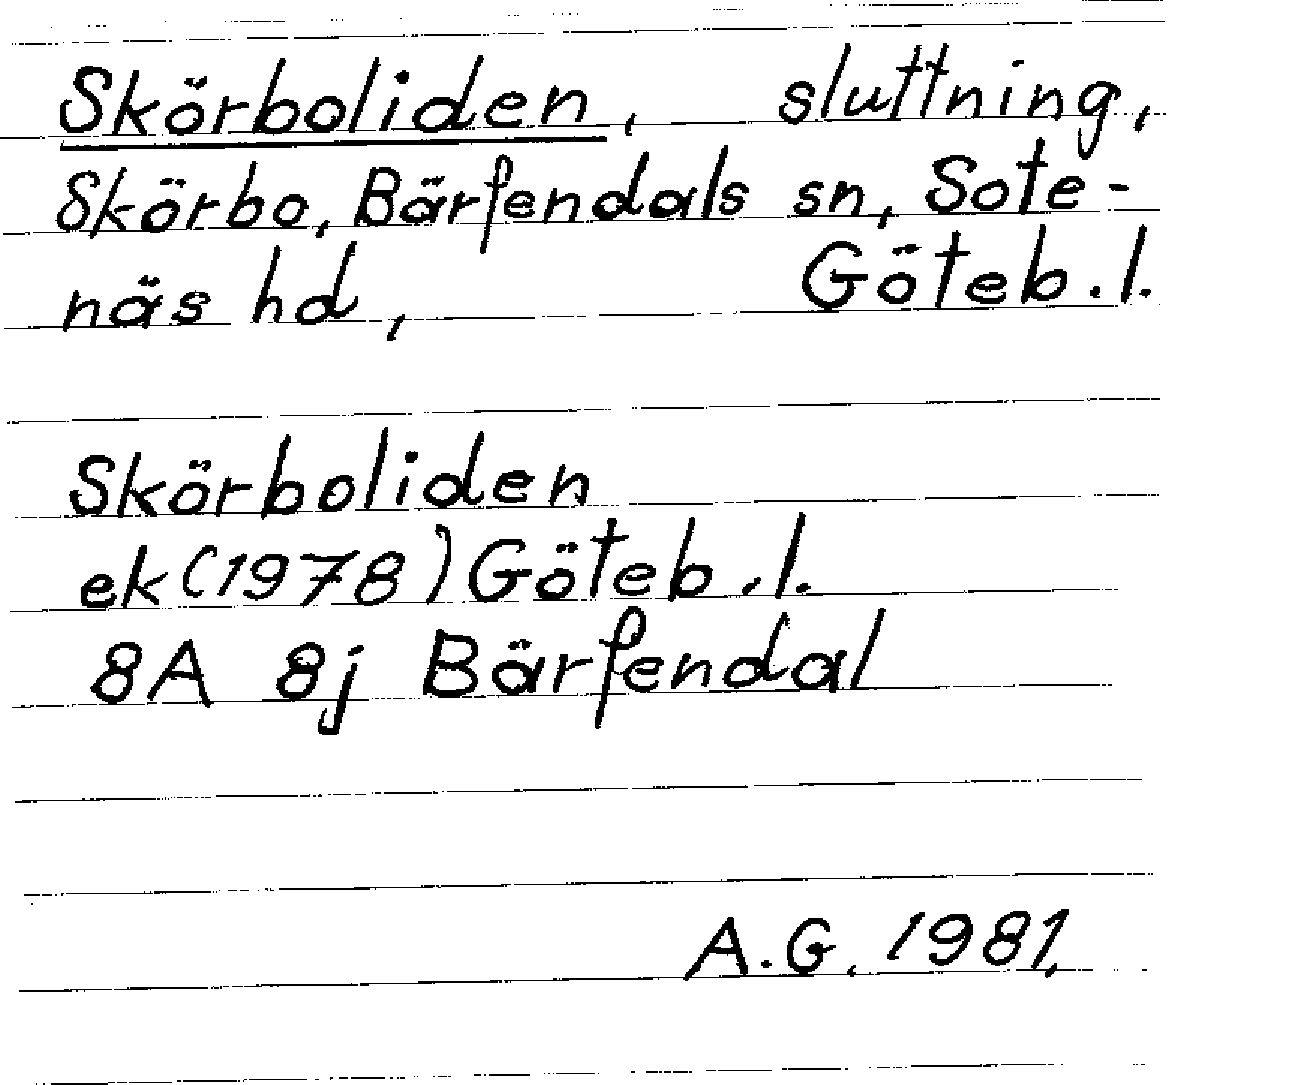 Skörboliden, sluttning,
Skörbo, Bärfendals sn, Sote-
näs hd, Göteb.l.
Skörboliden
ek (1978) Göteb.l.
8A 8j Bärfendal
A.G. 1981.